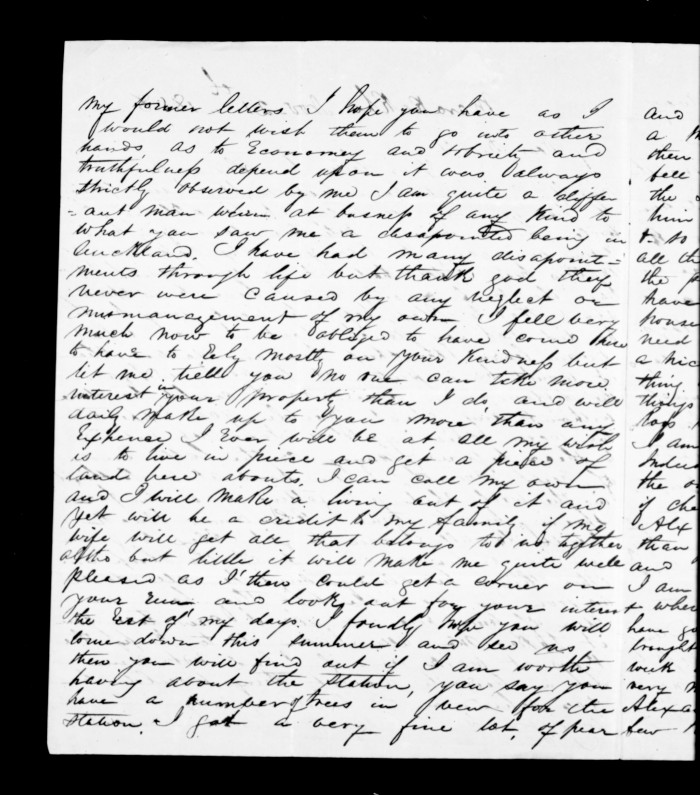 my former letters I hope you have as I
would not wish them to go into other
hands, as to Economey and sobriety and
truthfulness depend upon it was always
strictly observed by me I am quite a differ
=ant man when at busness of any kind to
what you saw me a disapointed being in
Auckland. I have had many disapoint=
ments through life but thank god they
never were caused by any neglect or
mismanagement of my own I fell very
much now to be obliged to have come here
to have to Rely mostly on your kindness but
let me tell you no one can take more
interest in your property than I do, and will
daily make up to you more than any
Expence I Ever will be at all my wish
is to live in piece and get a piece of
land here abouts. I can call my own
and I will make a living out of it and
yet will be a credit to my family if my
wife will get all that belongs to us together
altho but little it will make me quite well
pleased as I then could get a corner on
your Run and look out for your interest
the Rest of my days. I fondly hope you will
come down this summer and see us
then you will find out if I am worth
having about the station, you say you
have a number of trees in view for the
station. I got a very fine lot, of pear
and
a
then
fell
the
him
& so
all the
the
have
house
need
a nice
thing
things
I am
the
if
Alex
than
and
I am
when
have
brought
week
very
Alexa
few